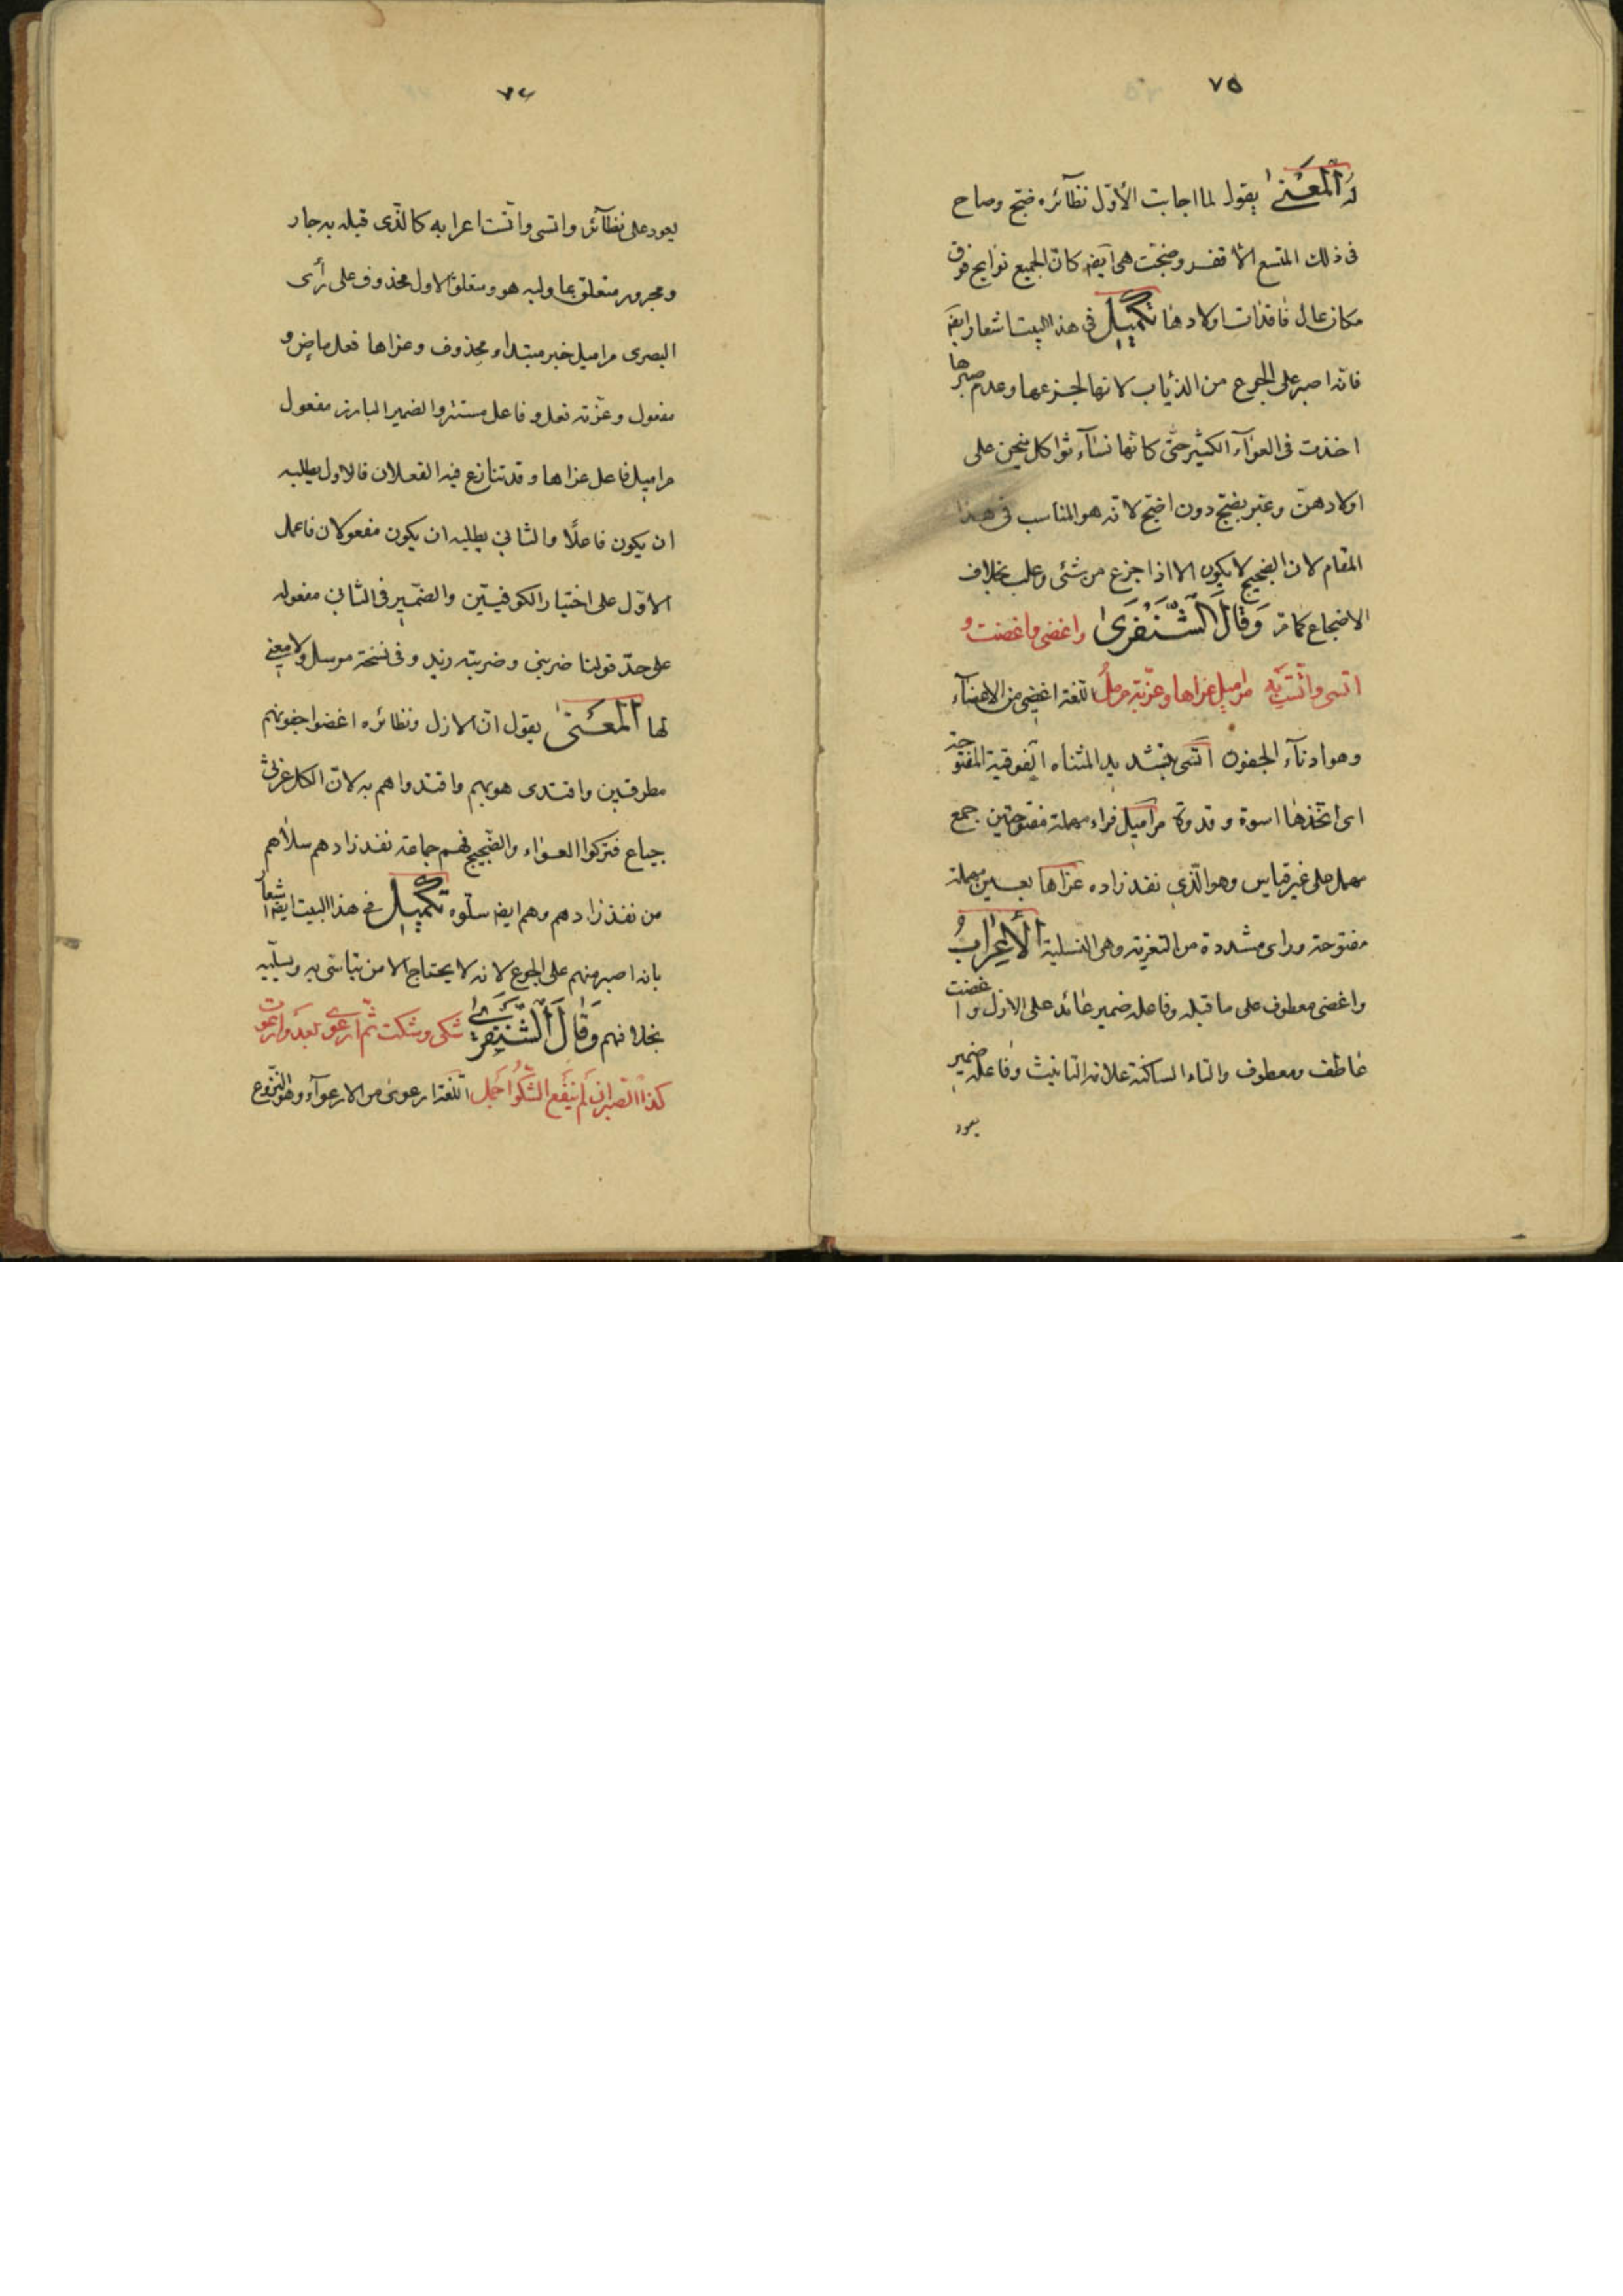 ٧٥
له المعنى يقول لما اجابت الأول نظائره ضج وصاح
فى ذلك المتسع الاقفر وضجت هى ايضه كان الجميع نوايح فوق
مكان عال فاقدات اولادها تكميل فى هذا البيت اشعار ايضه
فانه اصبر على الجوع من الذياب لانها لجزعها وعدم صبرها
اخذت فى العوآء الكثير حتى كانها نسآء ثواكل ينحن على
اولادهن وعبر بضج دون اضج لانه هو المناسب فى هذا
المقام لان الضجيج لا يكون الا اذا جزع من شئى وغلب بخلاف
الاضجاع كما مر وَقَالَ الشَّنْفَرَىٰ واغضى واغضت و
اتسى واتست به مراميل عزاها وعزته مرمل اللغة اغضى من الاغضآء
وهو ادنآء الجفون اتسى بتشديد المثناه الفوقية المفتوحة
اى اتخذها اسوة وقدوة مراميل فراء مهملة مفتوحتين جمع
مرمل على غير قياس وهو الّذي نفد زاده عزاها بعين مهملة
مفتوحة وزاى مشددة من التعزية وهى التسلية الأعراب
واغضى معطوف على ما قبله وفاعله ضمير عائد على الازل واغضت
عاطف ومعطوف والتاء الساكنة علامة التانيث وفاعله ضمير
يعود
٧٦
يعود على نظآئر واتسى واتست اعرابه كالّذى قبله به جار
ومجرور متعلق بما وليه هو ومتعلق الاول محذوف على رأى
البصرى مراميل خبر مبتدا محذوف وعزاها فعل ماض و
مفعول وعزته فعل وفاعل مستتر والضمير البارز مفعول
مراميل فاعل عزاها وقد تنازع فيه الفعلان فالاول يطلبه
ان يكون فاعلًا والثاني يطلبه ان يكون مفعولا فاعمل
الاوّل على اختيار الكوفيين والضمير فى الثانى مفعوله
على حدّ قولنا ضربنى وضربته زيد وفى نسخة مرسل ولا معنى
لها المعنىٰ يقول ان الازل ونظائره اغضوا جفونهم
مطرقين واقتدى هو بهم واقتدوا هم به لان الكل غرثى
جياع فتركوا العواء والضجيج فهم جماعة نفد زادهم سلاهم
من نفد زادهم وهم ايضه سلّوه تكميل فى هذا البيت ايضه اشعار
بانه اصبر منهم على الجوع لانه لا يحتاج الا من يتاسّى به ويسلّيه
بخلافهم وَقَالَ الشَّنْفَرَىٰ شكى وشكت ثم ارعوى بعد وارعوت
كذا الصبر ان لم ينفع الشكو اجمل اللغة ارعوى من الارعوآء وهو النزوع